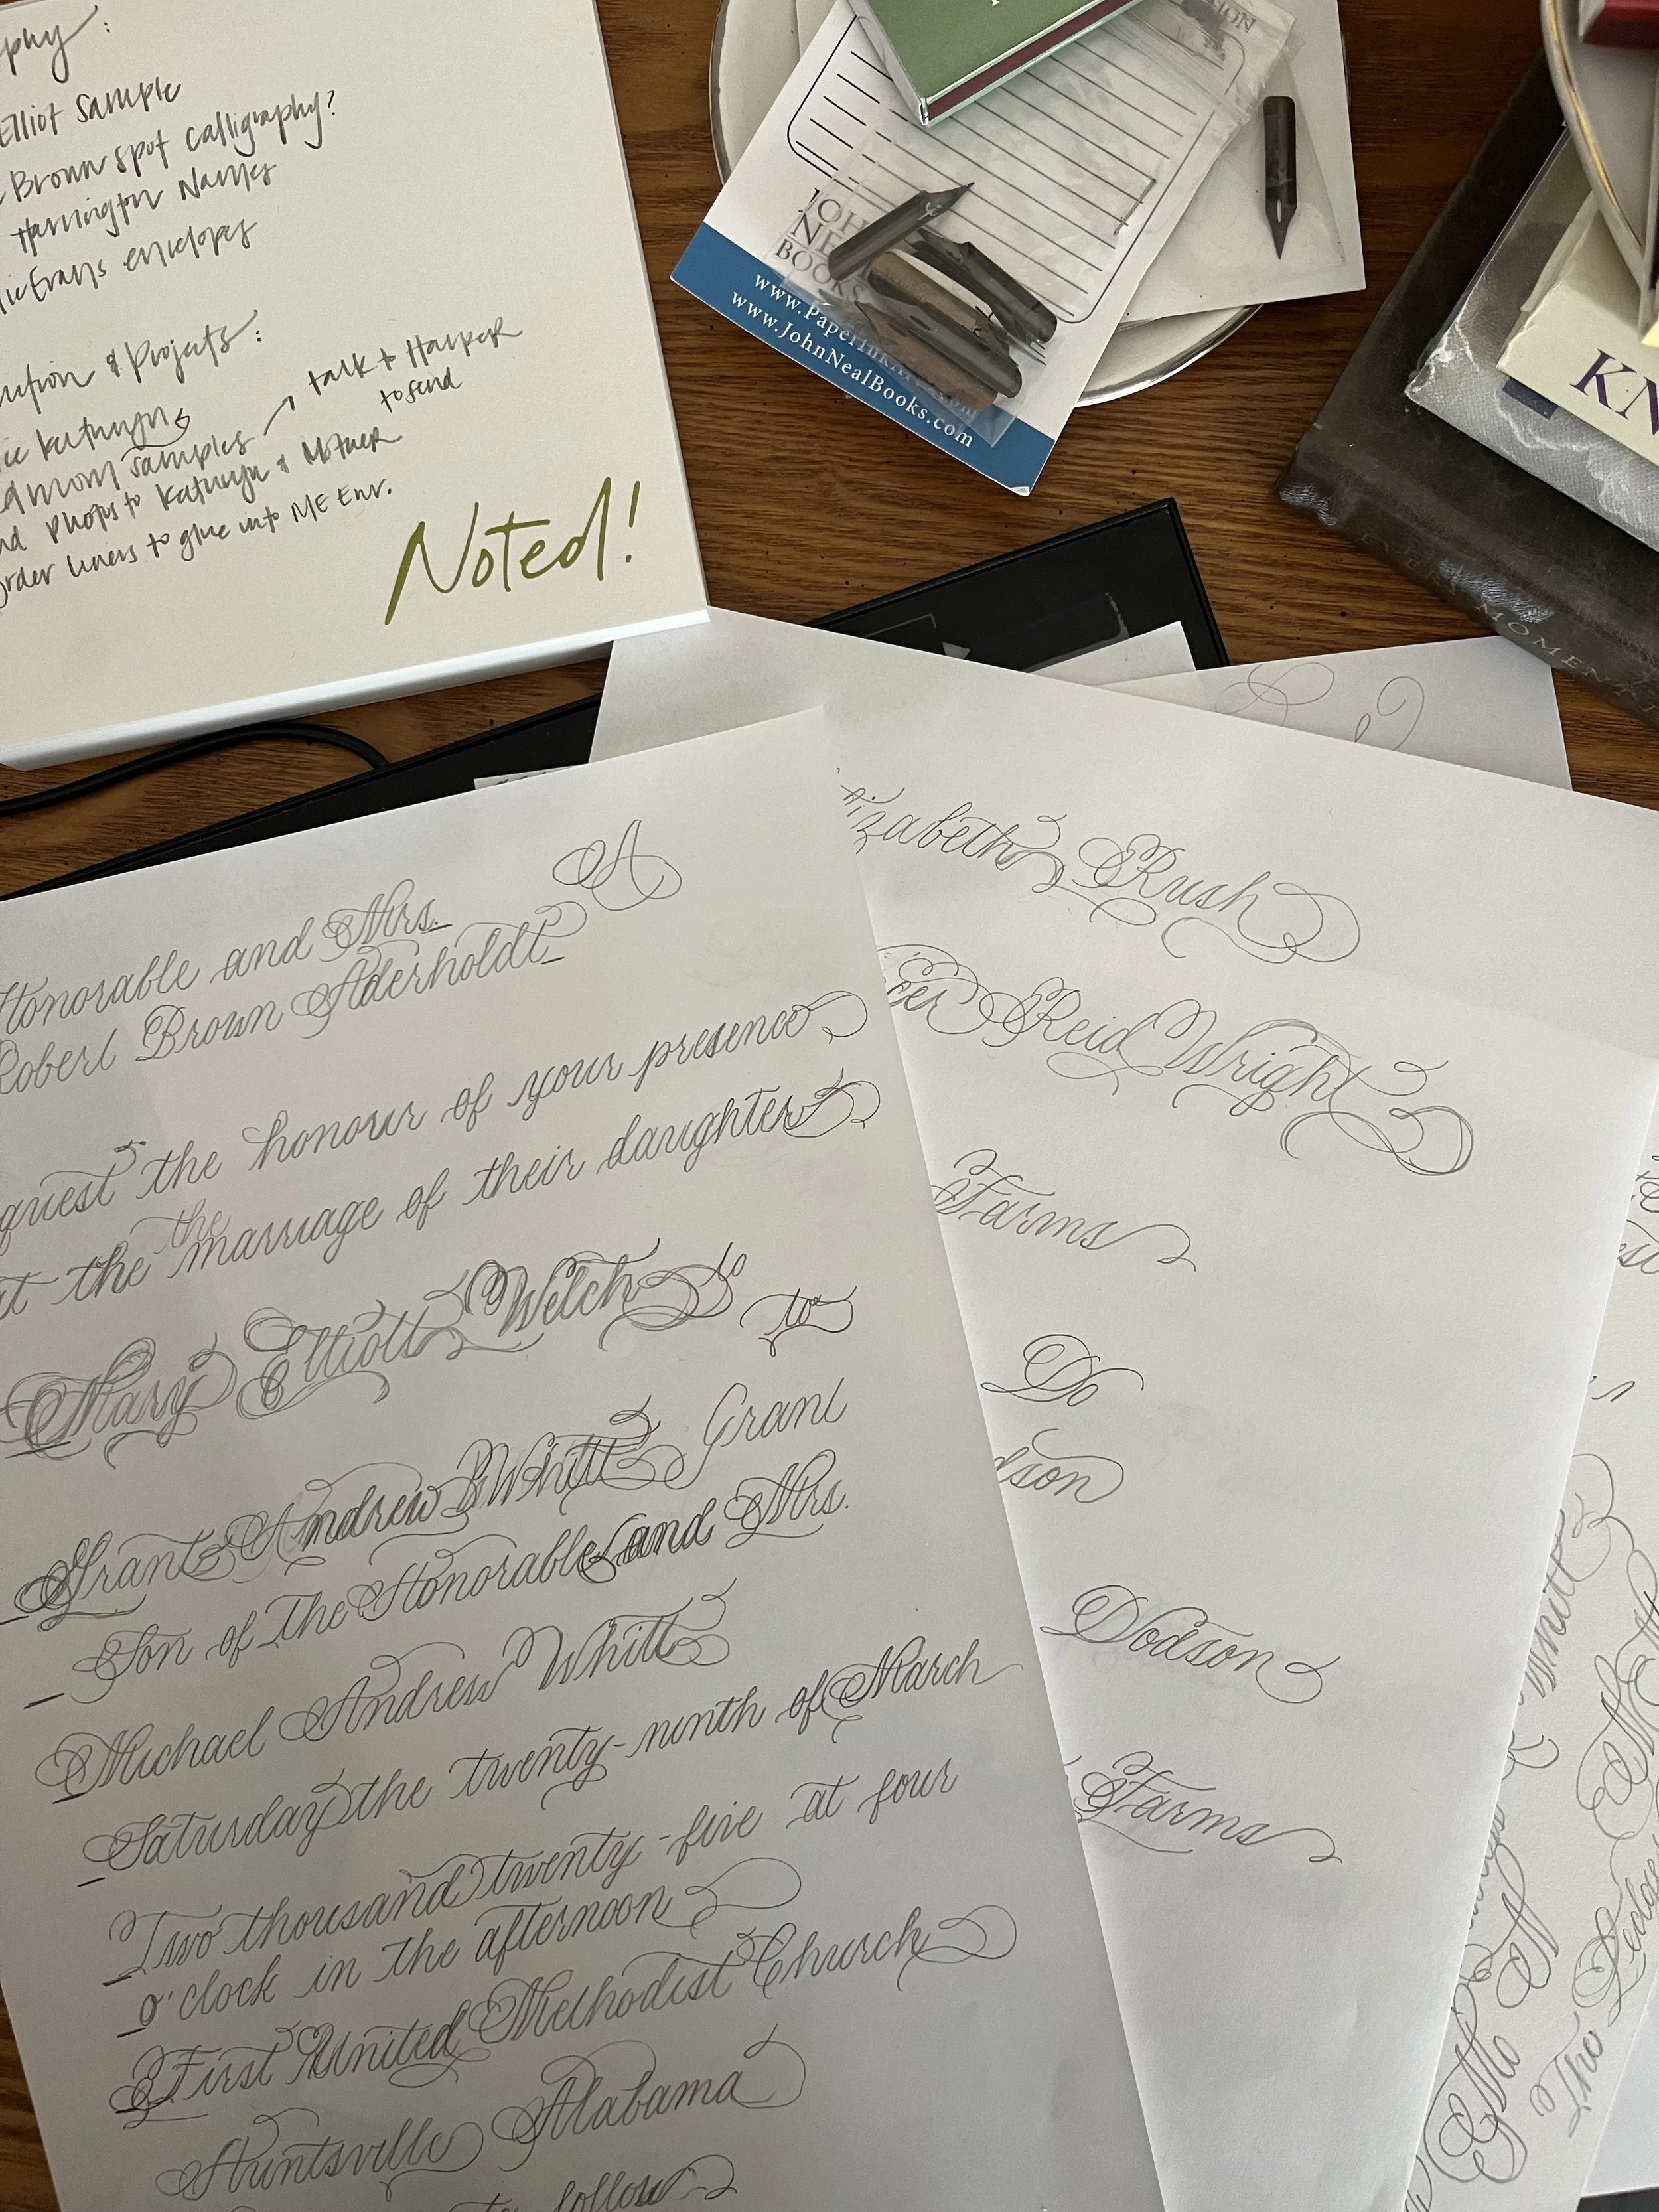 phy :
Elliot Sample
Brown spot calligraphy?
Harrington Names
Evans envelopes
& Projects :
Kathryn
samples → talk to Harper
to send
photos to Kathryn & Mother
order liners to glue into ME Env.
Noted!
JOHN
NEAL
BOOKS
www.JohnNealBooks.com
KN
MOMEN
A
Honorable and Mrs.
Robert Brown Aderholdt
quest the honour of your presence
the
at the marriage of their daughter
Mary Elliott Welch to
to
Grant Andrew Whitt Grant
Son of The Honorable and Mrs.
Michael Andrew Whitt
Saturday the twenty-ninth of March
Two thousand twenty-five at four
o'clock in the afternoon
First United Methodist Church
Huntsville Alabama
to follow
izabeth Rush
cer Reid Wright
Farms
Do
dson
Dodson
Farms
Whitt
The Ledges